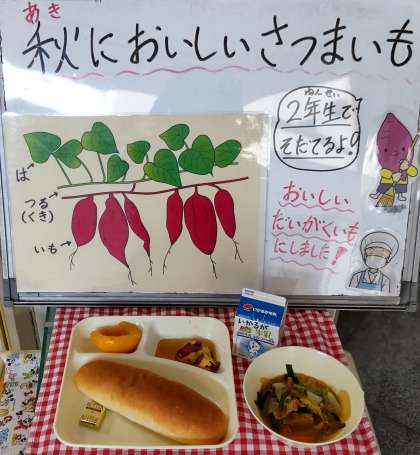 あき
秋においしいさつまいも
ねんせい
2年生で
そだてるよ!
は→
つる→
(くき)
いも→
おいしい
だいがくいも
にしました!
いかるが
牛乳